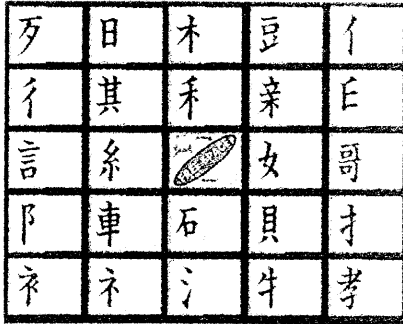 歹 日 木 豆 亻
彳 其 禾 亲 𠂉
言 糸 女 哥
阝 車 石 貝 扌
衤 礻 氵 牛 孝